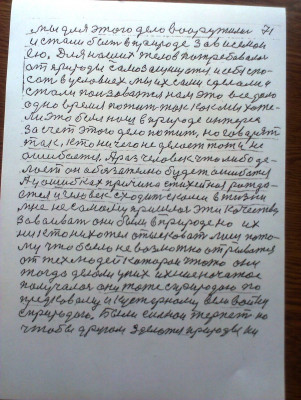 мы для этого дело вооружили 71
и стали быт в природе зависемои
ею. Для наших телов потребовалос
от природы самозащиота и себя спо-
сат в условиех мы их сами сделали и
стали ползоватся нам это все дело
одно время потит так как мы хоте-
ли это был наш в природе интерех
за счет этого дело потит, но говорят
так, кто ничего не делает тот и не
ошибается. А раз человек что либо де-
лает он обязателно будет ошибатся
А у ошибках причина стихейная рожда-
ется и человек сходит с колеи в жизни
мне не самому пришлос эти качеству
завоиват они были в природе но их
ни кто ни хотел отискиват или пото
му что было не возможно отриватся
от тех людей которая этого они
тогда делали у них их не иначатое
получалос они тоже с природою по
предковому и кустарному вели войну
с природою. Были силной терпет но
чтобы другом зделатся природы ни